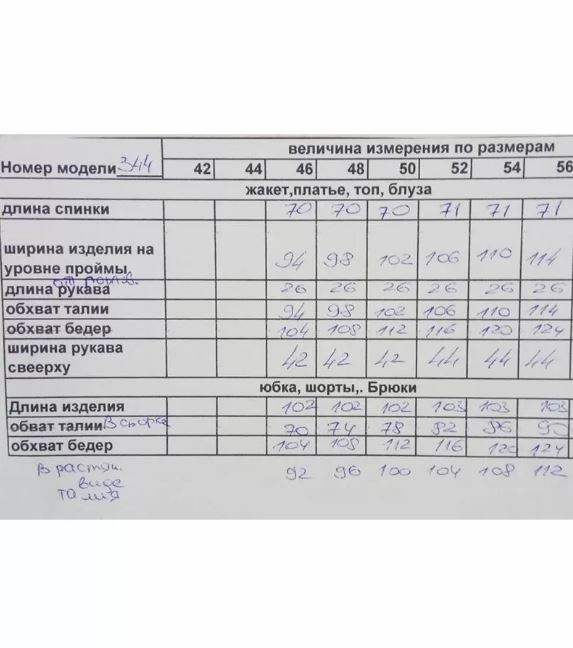 величина измерения по размерам
Номер модели 344 42 44 46 48 50 52 54 56
жакет,платье, топ, блуза
длина спинки 70 70 70 71 71 71
ширина изделия на
уровне проймы 94 98 102 106 110 114
длина рукава 26 26 26 26 26 26
обхват талии 94 98 102 106 110 114
обхват бедер 104 108 112 116 120 124
ширина рукава
свеерху 42 42 42 44 44 44
юбка, шорты,. Брюки
Длина изделия 102 102 102 103 103 103
обват талии В сборке 70 74 78 82 86 90
обхват бедер 104 108 112 116 120 124
В растян. 92 96 100 104 108 112
виде
талия